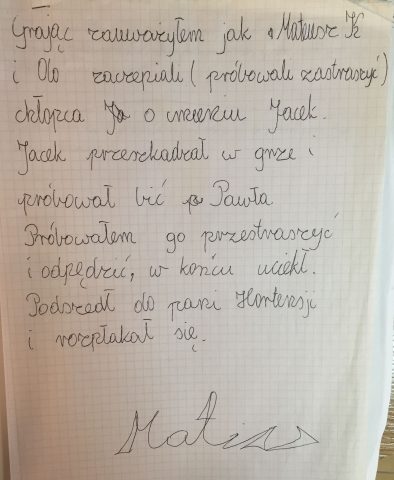 Grając zauważyłem jak Mateusz K
i Olo zaczepiali (próbowali zastraszyć)
chłopca o imieniu Jacek.
Jacek przeszkadzał w grze i
próbował bić Pawła
Próbowałem go przestraszyć
i odpędzić, w końcu uciekł.
Podszedł do pani Hortensji
i rozpłakał się.